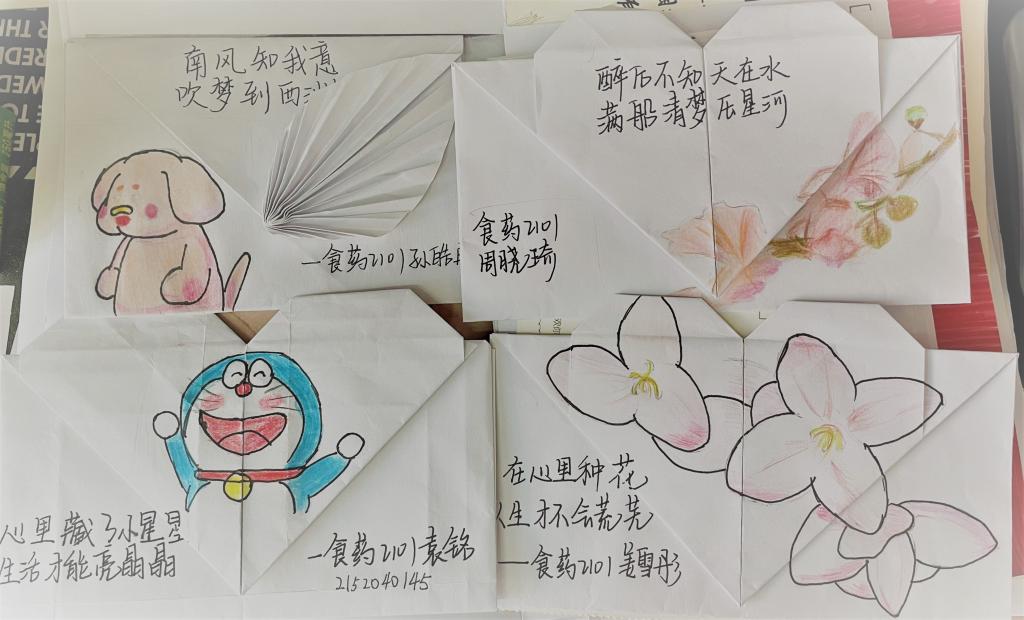 南风知我意
吹梦到西洲
—食药2101孙皓
醉后不知天在水
满船清梦压星河
食药2101
周晓琦
心里藏了小星星
生活才能亮晶晶
—食药2101袁铭
2152040145
在心里种花
人生才不会荒芜
—食药2101姜雪彤